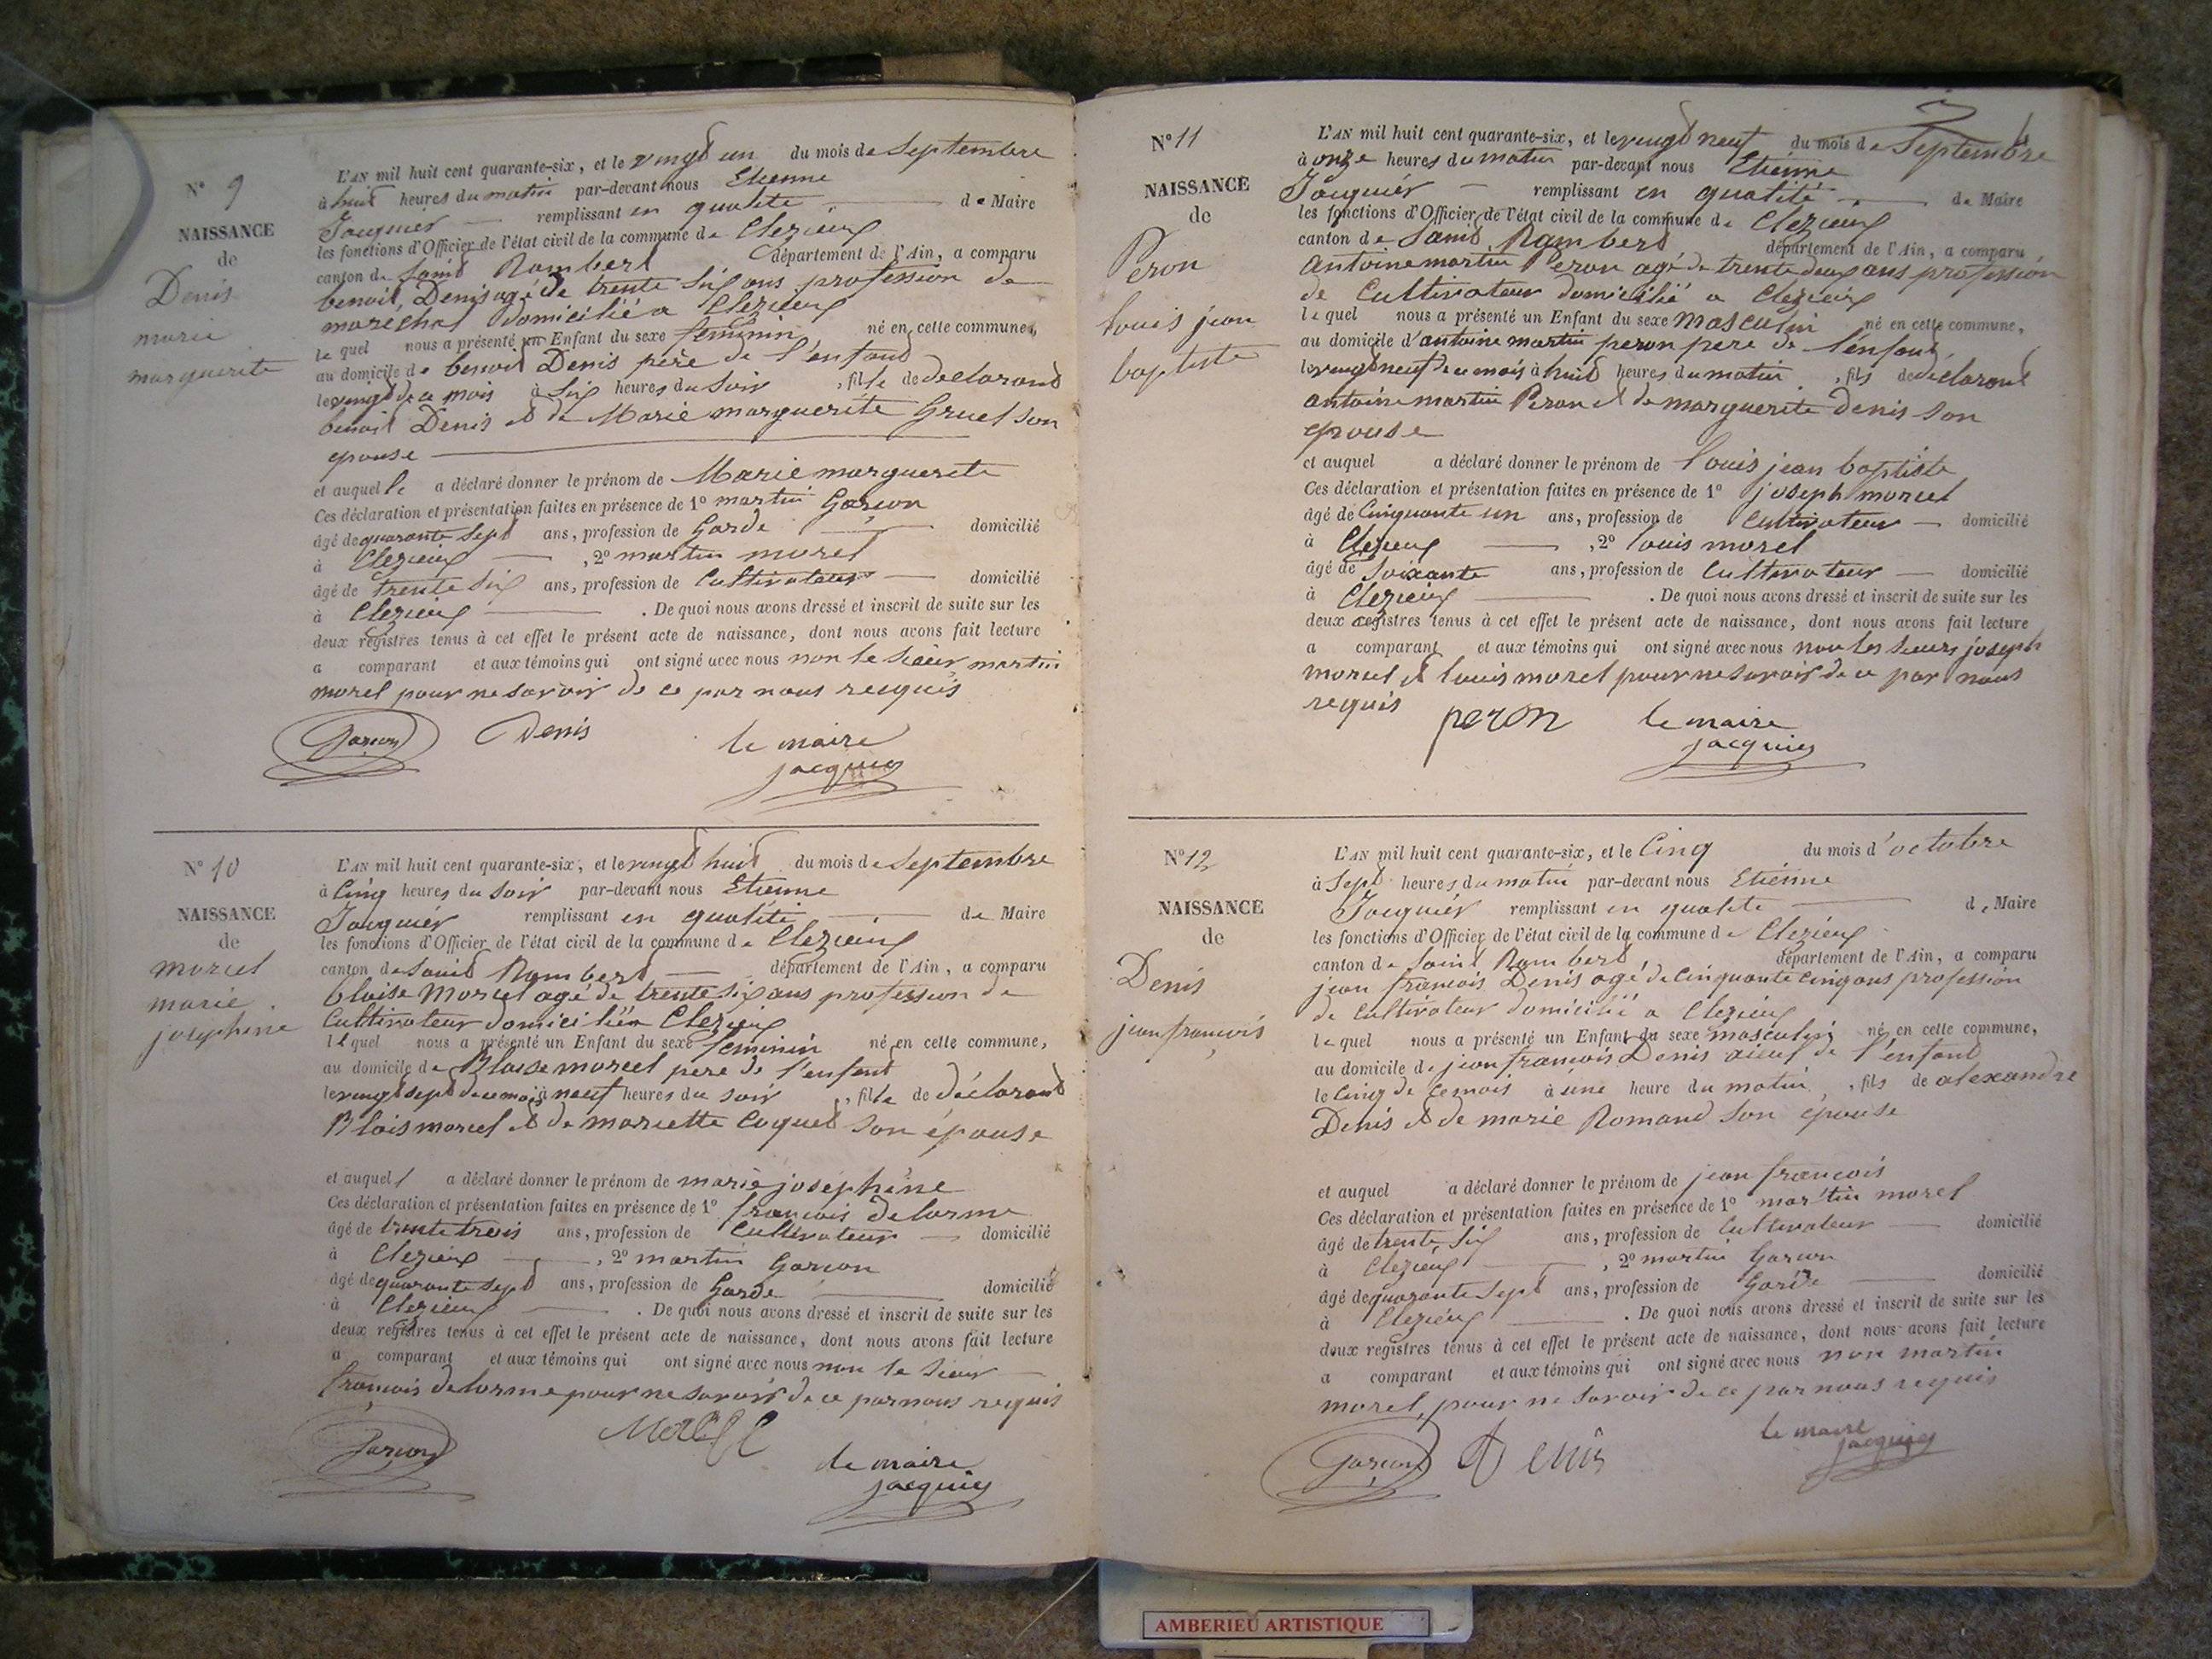 N° 9
NAISSANCE
de
Denis
marie
marguerite
L'AN mil huit cent quarante-six, et le vingt un du mois de Septembre
à huit heures du matin par-devant nous Etienne
Jacquier remplissant en qualité de Maire
les fonctions d'Officier de l'état civil de la commune de Clezieux
canton de Saint Rambert département de l'Ain, a comparu
benoit Denis agé de trente six ans profession de
maréchal domicilié a Clezieux
le quel nous a présenté un Enfant du sexe feminin né en cette commune,
au domicile de benoit Denis père de l'enfant
le vingt de ce mois à Six heures du Soir, fille de declarant
benoit Denis et de Marie marguerite Gruel son
epouse
et auquel le a déclaré donner le prénom de Marie marguerite
Ces déclaration et présentation faites en présence de 1° martin Garcon
âgé de quarante sept ans, profession de Garde domicilié
à Clezieux, 2° martin morel
âgé de trente Six ans, profession de Cultivateur domicilié
à Clezieux. De quoi nous avons dressé et inscrit de suite sur les
deux registres tenus à cet effet le présent acte de naissance, dont nous avons fait lecture
a comparant et aux témoins qui ont signé avec nous non le Sieur martin
morel pour ne savoir de ce par nous requis
Garcon Denis le maire
jacquier
N° 10
NAISSANCE
de
morcel
marie
josephine
L'AN mil huit cent quarante-six, et le vingt huit du mois de Septembre
à Cinq heures du Soir par-devant nous Etienne
Jacquier remplissant en qualité de Maire
les fonctions d'Officier de l'état civil de la commune de Clezieux
canton de Saint Rambert département de l'Ain, a comparu
blaise Morcel agé de trente six ans profession de
Cultivateur domicilié a Clezieux
le quel nous a présenté un Enfant du sexe feminin né en cette commune,
au domicile de Blaise morcel pere de l'enfant
le vingt sept de ce mois à neuf heures du soir, fille de déclarant
Blais morcel et de mariette Coquet son épouse
et auquel a déclaré donner le prénom de marie joséphine
Ces déclaration et présentation faites en présence de 1° francois delorme
âgé de trente trois ans, profession de Cultivateur domicilié
à Clezieux, 2° martin Garcon
âgé de quarante sept ans, profession de Garde domicilié
à Clezieux. De quoi nous avons dressé et inscrit de suite sur les
deux registres tenus à cet effet le présent acte de naissance, dont nous avons fait lecture
a comparant et aux témoins qui ont signé avec nous non le Sieur
francois delorme pour ne savoir de ce par nous requis
Garcon le maire
jacquier
N° 11
NAISSANCE
de
Peron
louis jean
baptiste
L'AN mil huit cent quarante-six, et le vingt neuf du mois de Septembre
à onze heures du matin par-devant nous Etienne
Jacquier remplissant en qualité de Maire
les fonctions d'Officier de l'état civil de la commune de Clezieux
canton de Saint Rambert département de l'Ain, a comparu
antoine martin Peron agé de trente deux ans profession
de Cultivateur domicilié a Clezieux
le quel nous a présenté un Enfant du sexe Masculin né en cette commune,
au domicile d'antoine martin peron pere de l'enfant,
le vingt neuf de ce mois à huit heures du matin, fils de declarant
antoine martin Peron et de marguerite Denis son
epouse
et auquel a déclaré donner le prénom de louis jean baptiste
Ces déclaration et présentation faites en présence de 1° joseph morcel
âgé de Cinquante un ans, profession de Cultivateur domicilié
à Clezieux, 2° louis morel
âgé de Soixante ans, profession de Cultivateur domicilié
à Clezieux. De quoi nous avons dressé et inscrit de suite sur les
deux registres tenus à cet effet le présent acte de naissance, dont nous avons fait lecture
a comparant et aux témoins qui ont signé avec nous non les sieurs joseph
morcel et louis morel pour ne savoir de ce par nous
requis peron le maire
jacquier
N° 12
NAISSANCE
de
Denis
jean francois
L'AN mil huit cent quarante-six, et le Cinq du mois d'octobre
à Sept heures du matin par-devant nous Etienne
Jacquier remplissant en qualité de Maire
les fonctions d'Officier de l'état civil de la commune de Clezieux
canton de Saint Rambert département de l'Ain, a comparu
jean francois Denis agé de Cinquante Cinq ans profession
de Cultivateur domicilié a Clezieux
le quel nous a présenté un Enfant du sexe masculin né en cette commune,
au domicile de jean francois Denis aieul de l'enfant
le Cinq de ce mois à une heure du matin, fils de alexandre
Denis et de marie Romand Son épouse
et auquel a déclaré donner le prénom de jean francois
Ces déclaration et présentation faites en présence de 1° martin morel
âgé de trente Six ans, profession de Cultivateur domicilié
à Clezieux, 2° martin Garcon
âgé de quarante Sept ans, profession de Garde domicilié
à Clezieux. De quoi nous avons dressé et inscrit de suite sur les
deux registres tenus à cet effet le présent acte de naissance, dont nous avons fait lecture
a comparant et aux témoins qui ont signé avec nous non martin
morel, pour ne savoir de ce par nous requis
Garcon Denis le maire
jacquier
AMBERIEU ARTISTIQUE